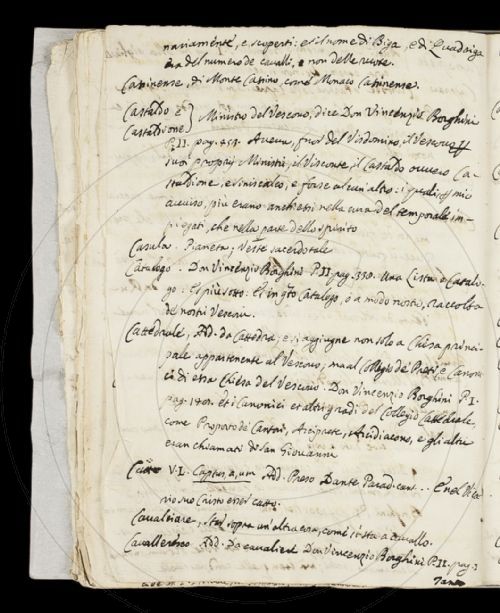 nariamente, e scoperti: e si nome di Biga, e di Quadriga
era del numero de cavalli, e non delle ruote.
Casinense, di Monte Casino, come Monaco Casinense.
Castaldo e
Castaldione } Ministro del Vescovo, dice Don Vincenzio Borghini
P. II. pag. Aveva, fuor del Visdomino, il Vescovo
suoi proprij Ministri, il Visconte, il Castaldo ovvero Ca-
staldione, e siniscalco, e forse alcun altro: i quali mio
avviso, più erano anch'essi nella cura del temporale im-
piegati, che nella parte dello spirito
Casula. Pianeta; Veste sacerdotale
Catalogo. Don Vincenzio Borghini P. II. pag. 330. Una Lista o Catalo-
go. E più sotto: E in qto Catalogo, o a modo nostro, Raccolta
de nostri Vescovi.
Cattedrale, Ad. da Cattedra, e si aggiugne non solo a Chiesa princi-
pale appartenente al Vescovo, ma al Collegio de Preti e Canoni-
ci di essa Chiesa del Vescovo. Don Vincenzio Borghini P. I.
pag. Et i Canonici et altri gradi del Collegio Cattedrale,
come Proposto de Cantori, Arciprete, Arcidiacono, e gli altri
eran chiamati di San Giovanni
V. L. Captus, a, um Ad. Preso Dante Parad. cant. .. E nel Vica-
rio suo Cristo esser catto.
Cavalciare, Star sopra un'altra cosa, come si sta a cavallo.
Cavalleresco. Ad. Da cavaliere Don Vincenzio Borghini P. II. pag. 3
Tanto